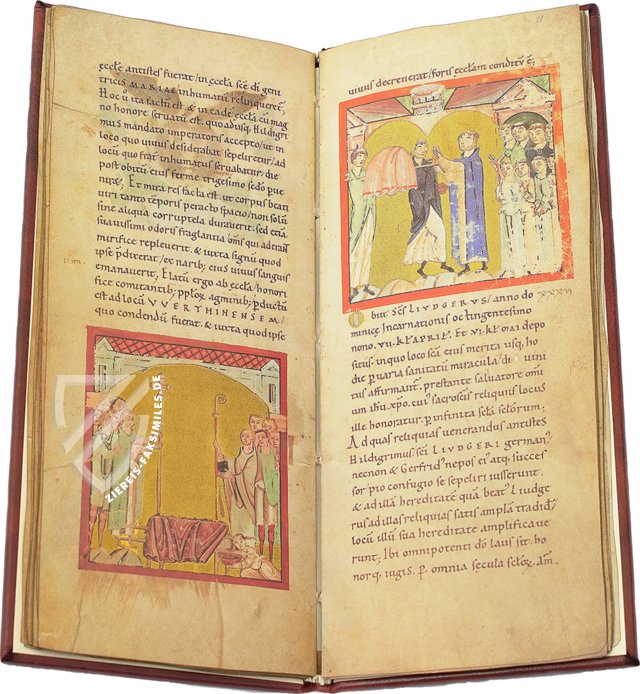 ecclę antistes fuerat / in eccła scę di geni
tricis MARIAE inhumatū relinqueret;
Hoc ita factū est. & in eadē eccła cū mag
no honore servatū est. quo adusq. Hildigri
mus mandato imperatoris accepto / ut in
loco quo vivus desiderabat sepeliretur / ad
locū quo frat inhumatus servabatur. die
post obitū eius ferme trigesimo sedo perve
Et mira res facta est. ut corpus beati
viri tanto tēporis peracto spacio / non solū
sine aliqua corruptela duraverit. sed etiā
suavissimi odoris fraglantia oms qui aderant
mirifice repleverit. & iuxta signum quod
ipse p̄dixerat / ex narib; eius vivus sanguis
emanaverit. Elatū ergo ab eccła / honori
fice comitantib; pplox agminib; p̄ductū
est ad locū VVERTHINENSEM /
quo condendū fuerat. & iuxta quod ipse
ZIEREIS-FAKSIMILES.DE
31
vivus decreverat / foris ecclam conditū ē;
XXXVI
Obiit Scs LIVDGERUS / anno do
minicę Incarnationis octingentesimo
nono. VII. kł APRIL. Et VI. kł MAI depo
situs. in quo loco sęni eius merita usq. ho
die p̄ varia sanitatū miracula / di vini
tus affirmant. prestante salvatore omi
um ihu xpo. cui sacrosēis reliquiis locus
ille honoratur. p̄ infinita sc̄ła sc̄łorum;
Ad quas reliquias venerandus antistes
Hildigrimus sc̄i LIVDGERI german
necnon & Gerfrid nepos ei atq. succes
sor / pio confugio se sepeliri iusserunt.
& ad illā hereditatē quā beat Liudge
rus ad illas reliquias satis amplā tradid /
locū illū sua hereditate amplificave
runt. Ibi omnipotenti dō laus sit. ho
norq. iugis. p̄ omnia secula sc̄łox. am.